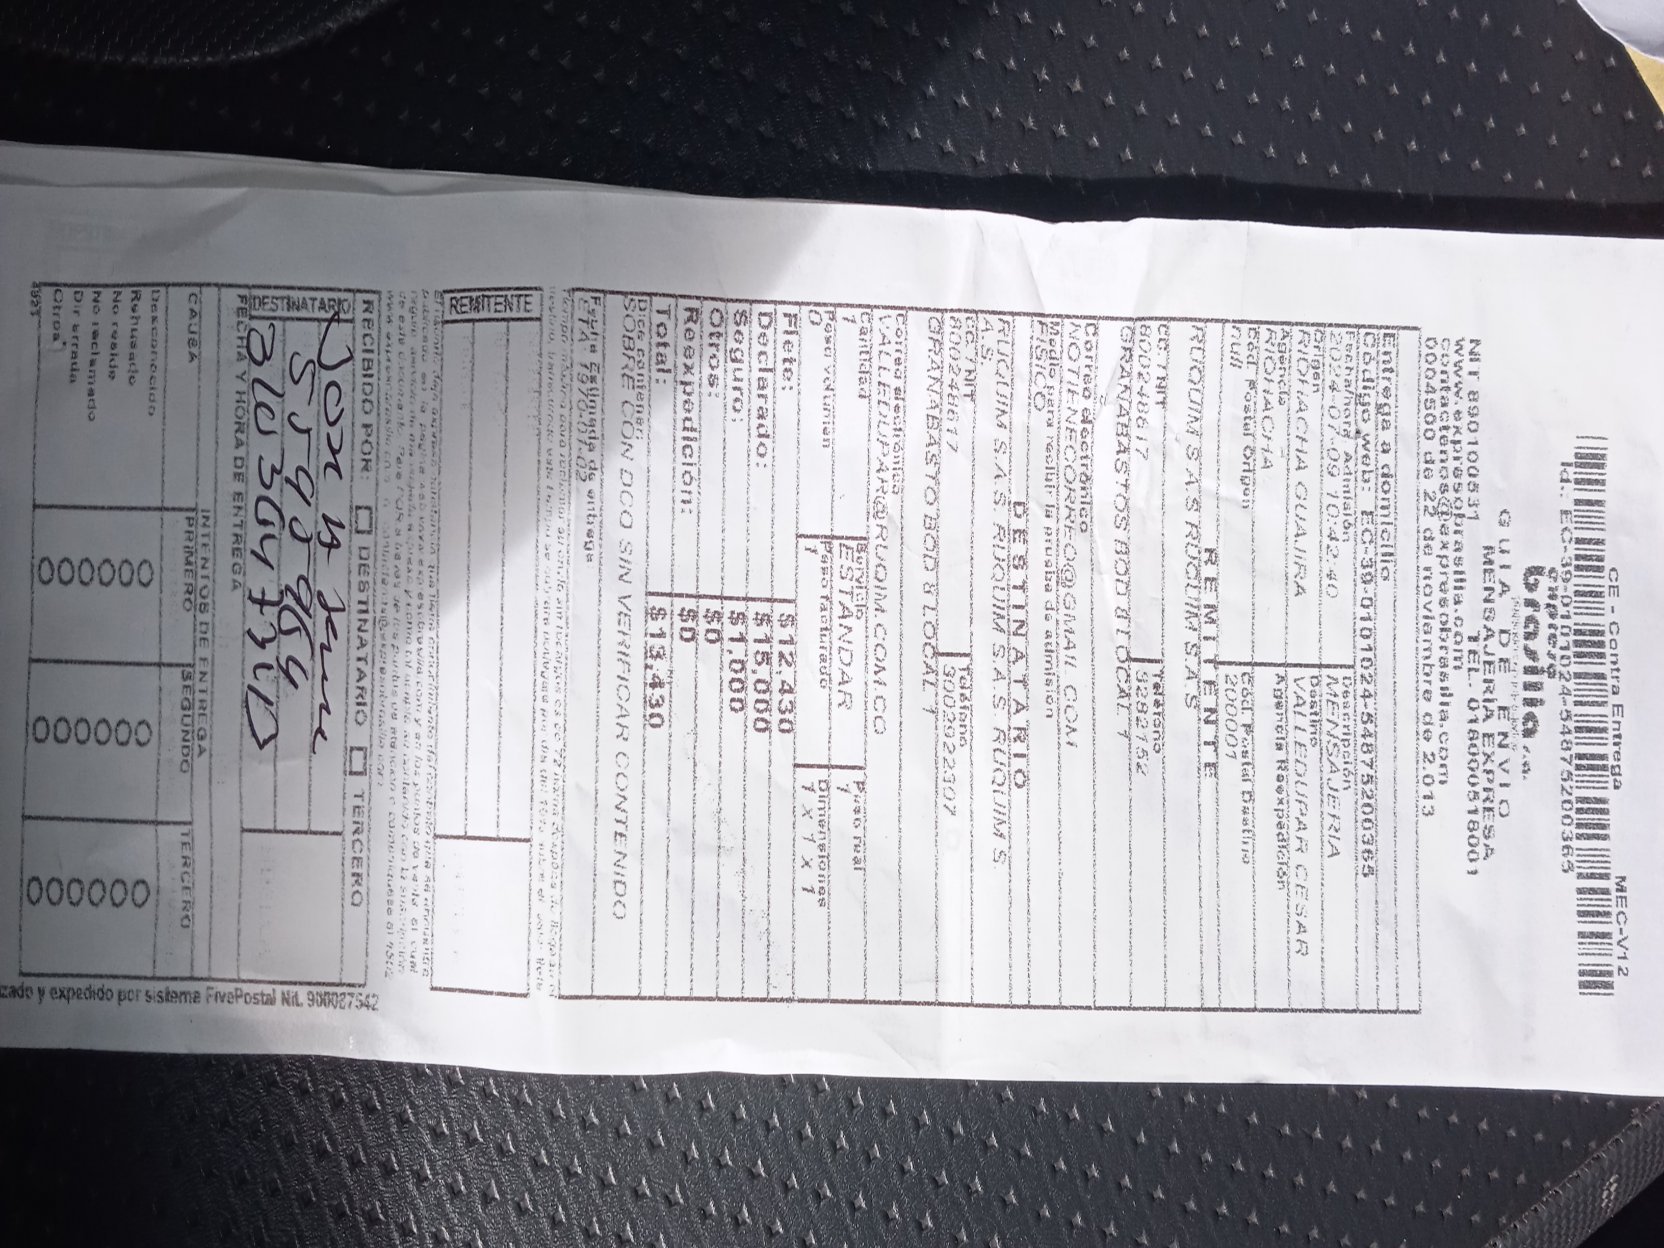 CE - Contra Entrega MEC-V12
Id.: EC-39-0101024-5487520036S
expreso
brasilia s.a.
GUIA DE ENVIO
MENSAJERÍA EXPRESA
NIT 890100531 TEL. 018000518001
www.expresobrasilia.com
contactenos@expresobrasilia.com
0004500 de 22 de noviembre de 2.013
Entrega a domicilio
Código web: EC-39-0101024-54875200365
Fecha/hora Admisión Descripción
2024-07-09 10:42:40 MENSAJERIA
Origen Destino
RIOHACHA GUAJIRA VALLEDUPAR CESAR
Agencia Agencia Reexpedición
RIOHACHA
Cód. Postal Origen Cód. Postal Destino
null 200001
REMITENTE
RUQUIM S.A.S RUQUIM S.A.S
cc. NIT Teléfono
800248617 5282152
GRANABASTOS BOD 8 LOCAL 1
Correo electrónico
NOTIENECORREO@GMAIL.COM
Medio para recibir la prueba de admisión
FISICO
DESTINATARIO
RUQUIM S.A.S RUQUIM S.A.S RUQUIM S.
A.S.
cc. NIT Teléfono
800248617 3009922307
GRANABASTO BOD 8 LOCAL 1
Correo electrónico
VALLEDUPAR@RUQIM.COM.CO
Cantidad Servicio Peso real
1 ESTANDAR 1
Peso volumen Peso facturado Dimensiones
0 1 1 X 1 X 1
Flete: $12,430
Declarado: $15,000
Seguro: $1,000
Otros: $0
Reexpedición: $0
Total: $13,430
Dice contener:
SOBRE CON DCO SIN VERIFICAR CONTENIDO
Fecha Estimada de entrega
ETA 1970-01-02
REMITENTE
RECIBIDO POR: DESTINATARIO TERCERO
DESTINATARIO
FECHA Y HORA DE ENTREGA
INTENTOS DE ENTREGA
CAUSA PRIMERO SEGUNDO TERCERO
Desconocido
Rehusado
No reside
No reclamado
Dir errada
Otros
zado y expedido por sistema FivePostal Nit. 900027542